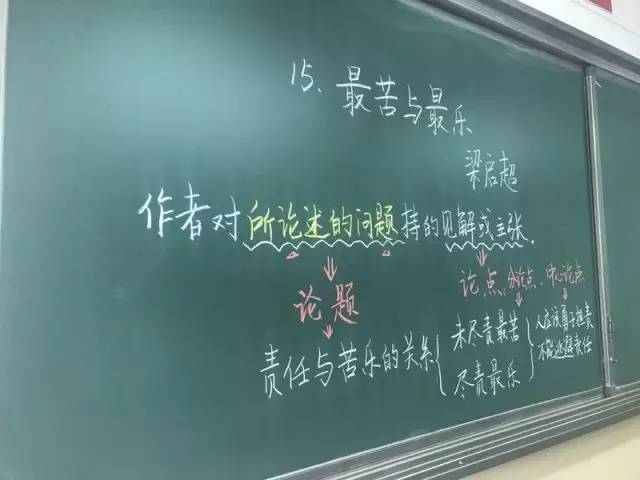 15、最苦与最乐
梁启超
作者对所论述的问题持的见解或主张.
论题
论点、分论点、中心论点
责任与苦乐的关系{
未尽责最苦
尽责最乐
}
人应该勇于担责
不能逃避责任